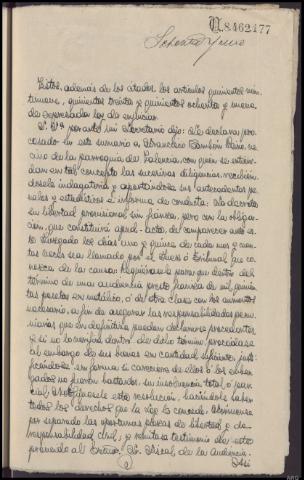 8462177
Sesenta y uno
Vistos, además de los citados los artículos quinientos veinti-
nueve, quinientos treinta y quinientos ochenta y nueve
de expresada Ley de enjuiciar.
S. Sª por ante mí Secretario dijo: Se declara pro-
cesado en este sumario a Francisco
cino de la parroquia de Valencia, con quien se enten-
dan en tal concepto las sucesivas diligencias, recibien-
dosele indagatoria y aportándose sus antecedentes pe-
nales y estadísticos e informe de conducta: Se decreta
su libertad provisional sin fianza, pero con la obliga-
ción, que constituirá apud-acta, de comparecer ante es-
te Juzgado los días uno y quince de cada mes y cuan-
tas veces sea llamado por el Juez o Tribunal que co-
nozca de la causa. Requiérasele para que dentro del
término de una audiencia preste fianza de mil quinien-
tas pesetas en metálico, o de otra clase con los aumentos
necesarios, a fin de asegurar las responsabilidades pecu-
niarias que en definitiva puedan declararse procedentes
y si no lo verifica dentro de dicho término, procédase
al embargo de sus bienes en cantidad suficiente, justi-
ficándose en forma si careciere de ellos o los embar-
gados no fueren bastantes, su insolvencia total o par-
cial. Notifíquesele esta resolución, haciéndole saber
todos los derechos que la Ley le concede. Fórmense
por separado las oportunas piezas de libertad y de
responsabilidad civil, y remítase testimonio de este
proveído al Señor Fiscal de la Audiencia.
Así